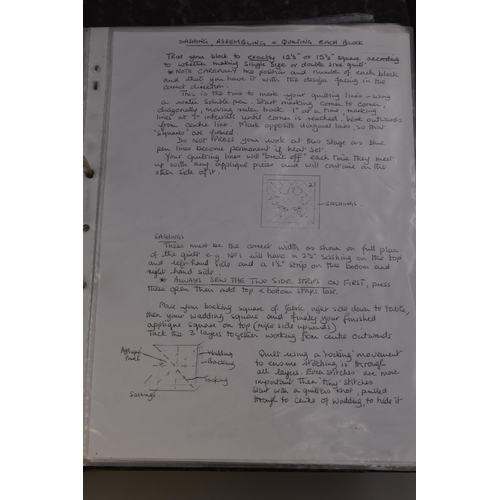 SASHING, ASSEMBLING & QUILTING EACH BLOCK
Trim your block to exactly 12½" or 15½" square according
to whether making single size or double size quilt.
* NOTE CAREFULLY the position and number of each block
and that you have it with the design facing in the
correct direction.
This is the time to mark your quilting lines - using
a water soluble pen. Start marking corner to corner,
diagonally, moving ruler back 1" at a time marking
lines at 1" intervals until corner is reached. Work outwards
from centre line. Mark opposite diagonal lines, so that
"squares" are formed.
Do NOT PRESS your work at this stage as blue
pen lines become permanent if heat set.
Your quilting lines will "break off" each time they meet
up with any appliqué pieces and will continue on the
other side of it.
21
SASHINGS
SASHINGS
These must be the correct width as shown on full plan
of the quilt e.g. No 1 will have a 2½" sashing on the top
and left-hand side and a 1½" strip on the bottom and
right hand side.
* ALWAYS SEW THE TWO SIDE STRIPS ON FIRST, press
these open then add top & bottom strips last.
Place your backing square of fabric right side down to table,
then your wadding square and finally your finished
appliqué square on top (right side upwards)
Tack the 3 layers together working from centre outwards
Appliqué
Wadding
Backing
Tacking
Sashings
Quilt using a 'rocking' movement
to ensure stitching is through
all layers. Even stitches are more
important than tiny stitches
Start with a quilters knot, pulled
through to centre of wadding to hide it